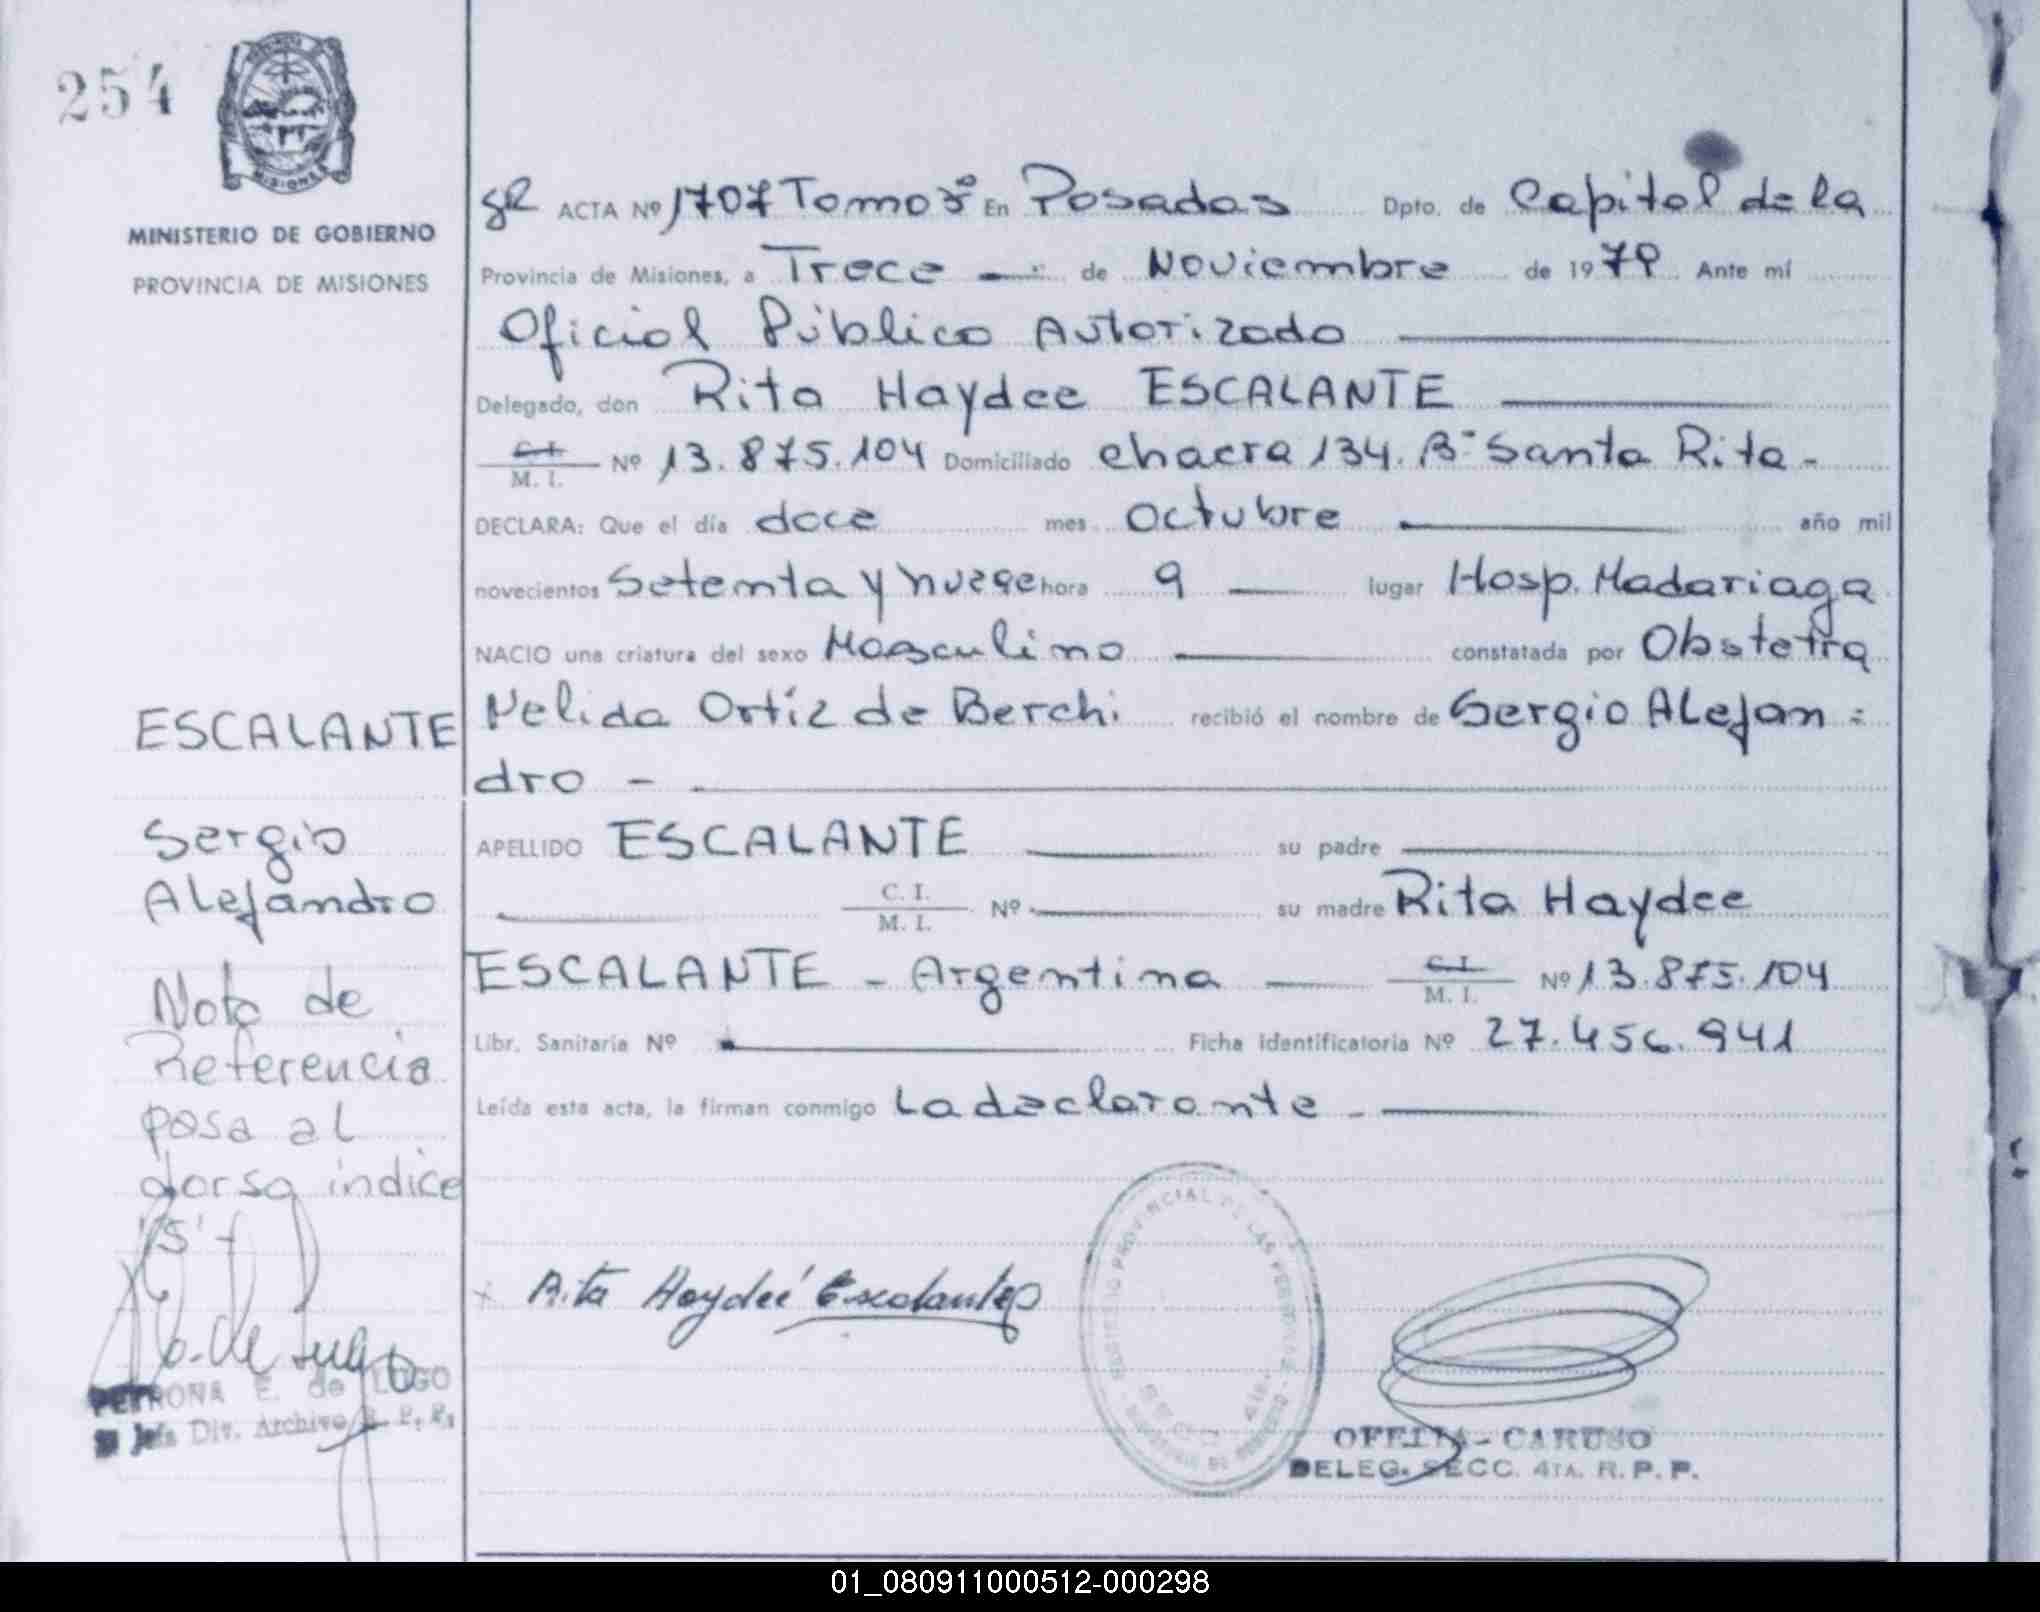 254
MISIONES
MINISTERIO DE GOBIERNO
PROVINCIA DE MISIONES
ACTA Nº 1707 Tomo 3º En Posadas Dpto. de Capital de la
Provincia de Misiones, a Trece de Noviembre de 1979 Ante mí
Oficial Público Autorizado
Delegado, don Rita Haydee ESCALANTE
C.I.
M. I. Nº 13.875.104 Domiciliado chacra 134. Bº Santa Rita-
DECLARA: Que el día doce mes Octubre año mil
novecientos Setenta y nueve hora 9 lugar Hosp. Madariaga
NACIO una criatura del sexo Masculino constatada por Obstetra
Nelida Ortiz de Berchi recibió el nombre de Sergio Alejan=
dro -
APELLIDO ESCALANTE su padre
C. I.
M. I. Nº su madre Rita Haydee
ESCALANTE - Argentina C.I.
M. I. Nº 13.875.104
Libr. Sanitaria Nº Ficha identificatoria Nº 27.456.941
Leída esta acta, la firman conmigo La declarante -
ESCALANTE
Sergio
Alejandro
Nota de
Referencia
pasa al
dorso indice
"S"
PETRONA E. de LUGO
Jefa Div. Archivo R. P. P.
Rita Haydeé Escalante
PROVINCIAL DE LAS PERSONAS
CARUSO
DELEG. SECC. 4TA. R. P. P.
01_080911000512-000298